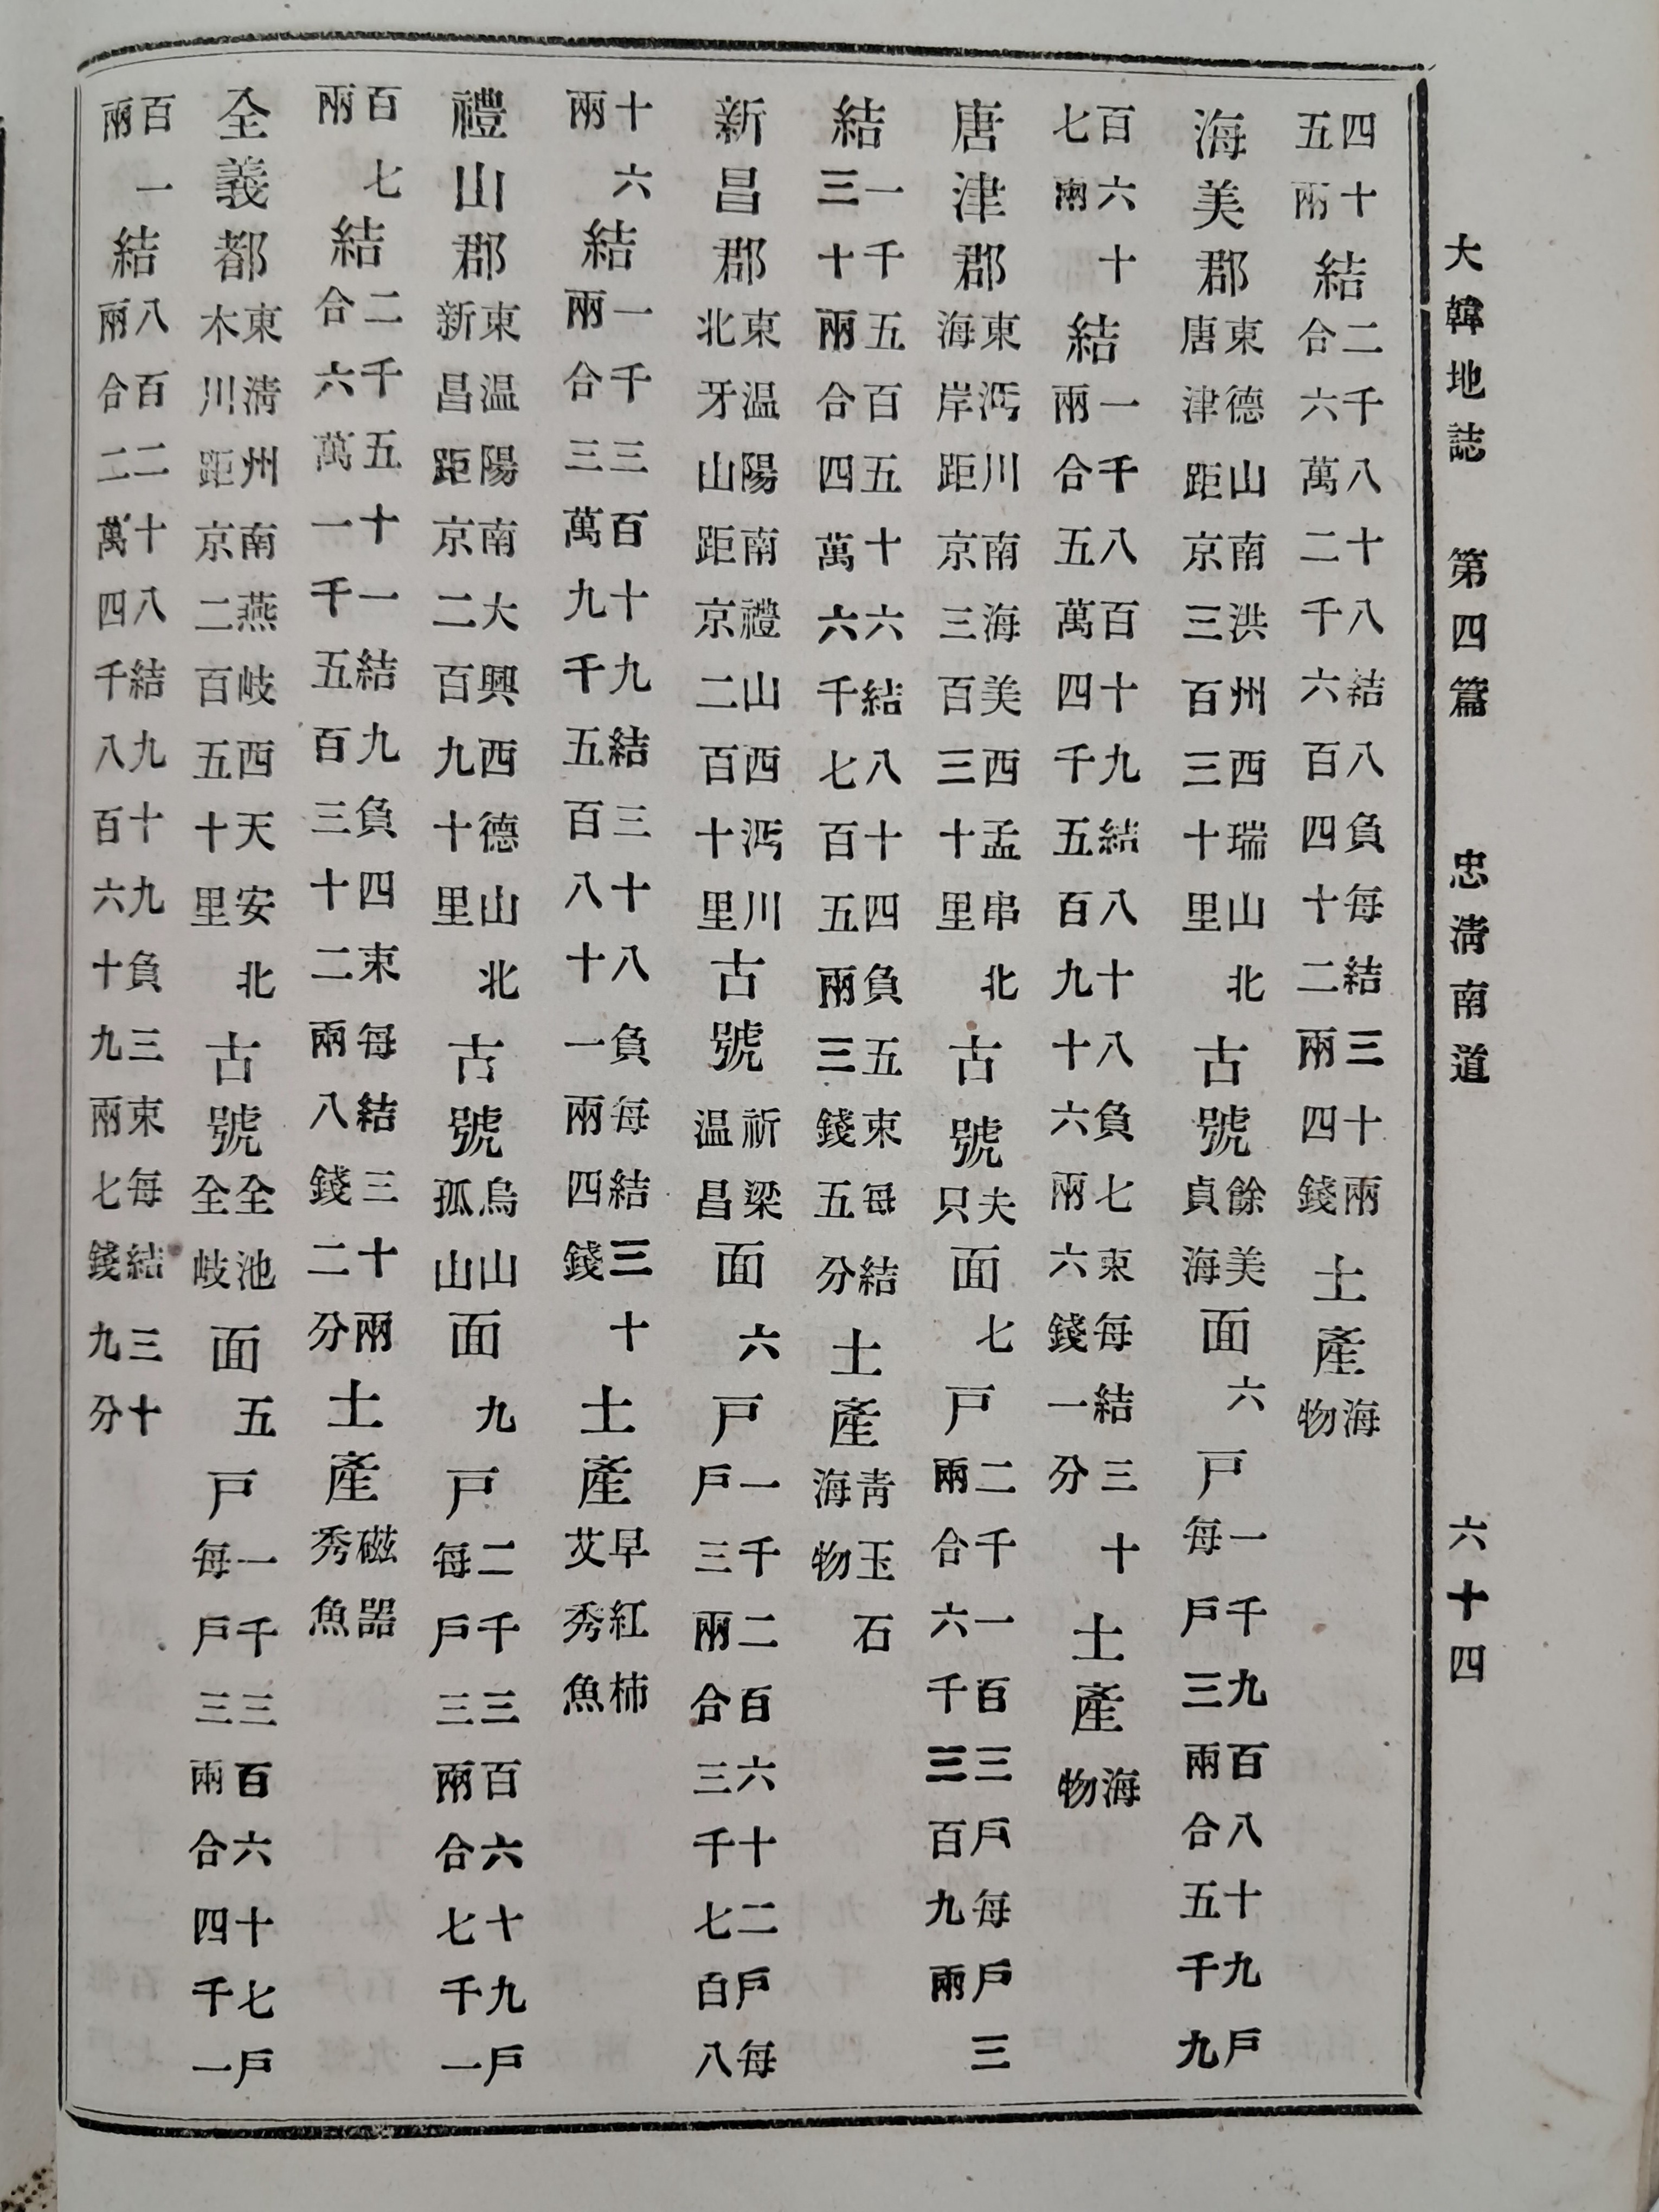 大韓地誌 第四篇 忠淸南道 六十四
四十五兩結二千八十八結八負每結三十兩合六萬二千六百四十二兩四錢土產海物
海美郡東德山南洪州西瑞山北唐津距京三百三十里古號餘美貞海面六戶一千九百八十九戶每戶三兩合五千九
百六十七兩結一千八百十九結八十八負七束每結三十兩合五萬四千五百九十六兩六錢一分土產海物
唐津郡東沔川南海美西孟串北海岸距京三百三十里古號夫只面七戶二千一百三戶每戶三兩合六千三百九兩
結一千五百五十六結八十四負五束每結三十兩合四萬六千七百五兩三錢五分土產靑玉石海物
新昌郡東温陽南禮山西沔川北牙山距京二百十里古號祈梁温昌面六戶一千二百六十二戶每戶三兩合三千七百八
十六兩結一千三百十九結三十八負每結三十兩合三萬九千五百八十一兩四錢土產早紅柿艾秀魚
禮山郡東温陽南大興西德山北新昌距京二百九十里古號烏山孤山面九戶二千三百六十九戶每戶三兩合七千一
百七兩結二千五十一結九負四束每結三十兩合六萬一千五百三十二兩八錢二分土產磁器秀魚
全義都東淸州南燕岐西天安北木川距京二百五十里古號全池全岐面五戶一千三百六十七戶每戶三兩合四千一
百一兩結八百二十八結九十九負三束每結三十兩合二萬四千八百六十九兩七錢九分